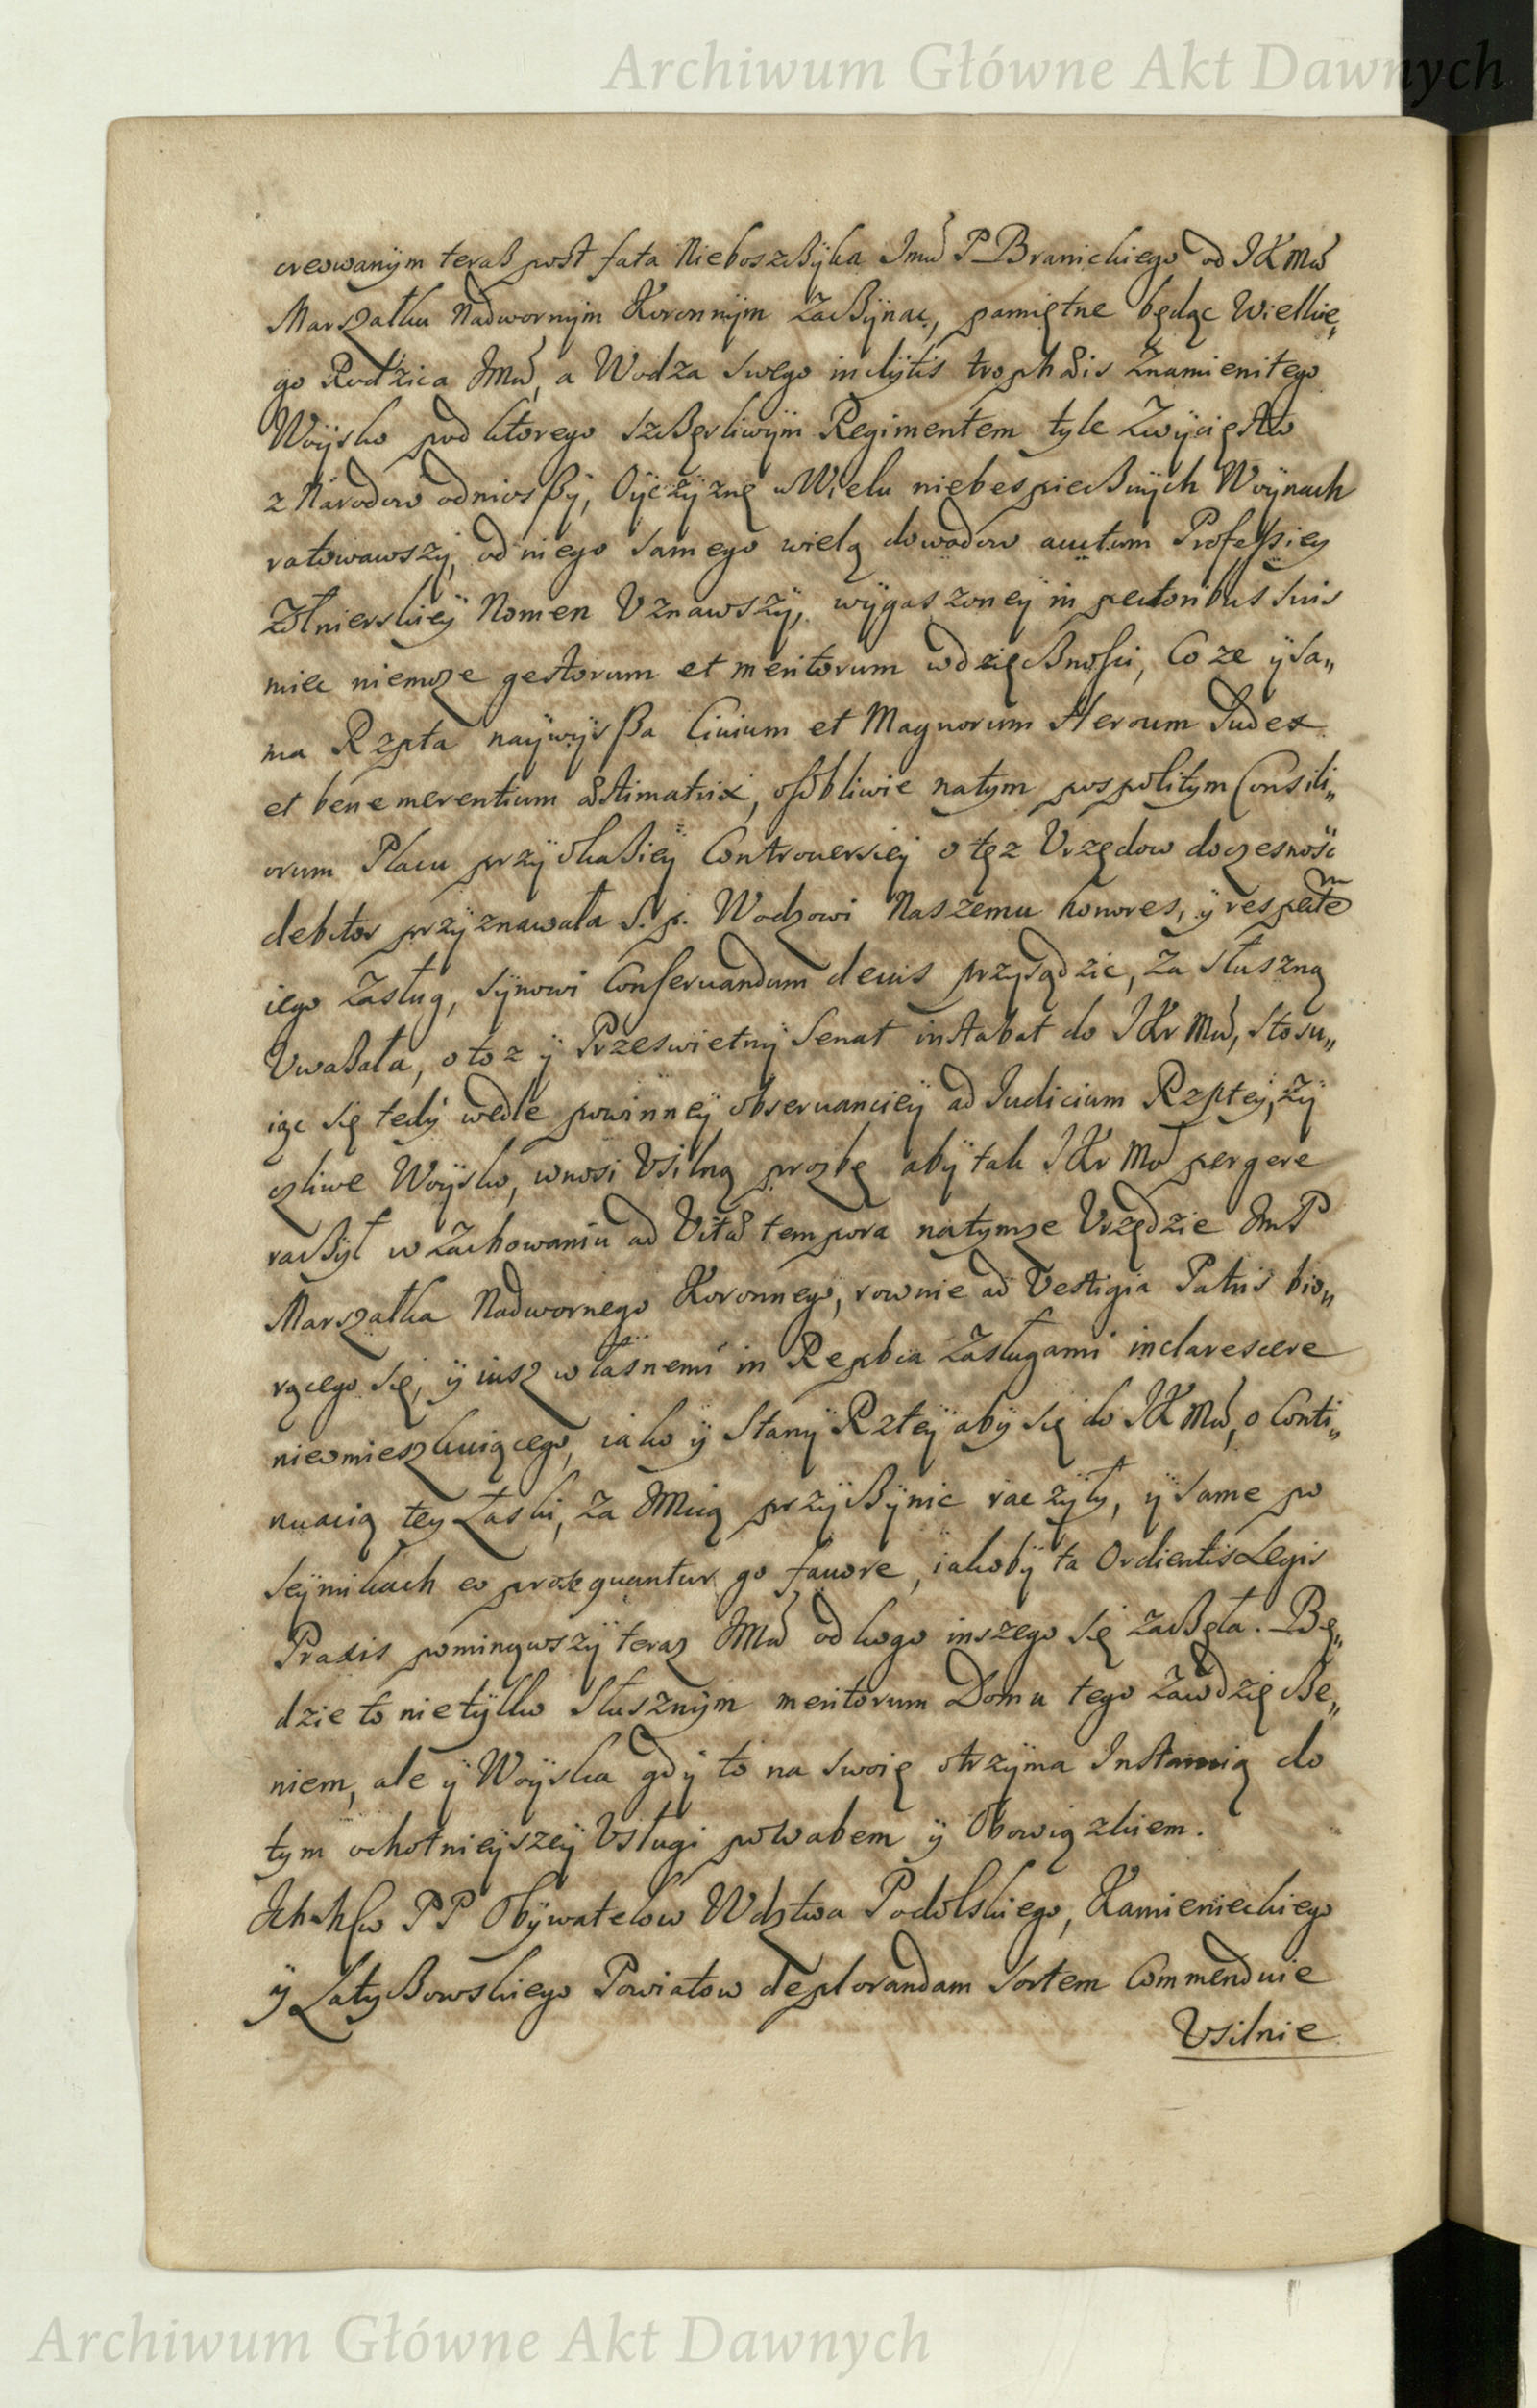 Archiwum Główne Akt Dawnych
creowanÿm teraß post fata NieboszßÿKa Jmci P Branickiego od JKMci
Marszałku Nadwornÿm Koronnÿm zaßÿnac, pamiętne będąc Wielkie„
go Rodzica JMci, a Wodza swego inclÿtis trophæis Znamienitego
Woÿsko pod ktorego szßęsliwÿm Regimentem tyle Zwÿcięstw
z Narodow odniosßÿ, Oÿczÿznę w Wielu niebespießnÿch Woÿnach
ratowawszÿ, od niego samego wielą dowodow auctum Professiey
Zołnierskieÿ Nomen Vznawszÿ, wÿgaszoneÿ in pectoribus suis
miec niemoze gestorum et meritorum wdzięßnosci, Co ze ÿ sa„
ma Rzpta naÿwÿsßa Ciuium et Magnorum Heroum Iudex
et benemerentium æstimatrix, osobliwie natym pospolitym Consili„
orum Placu przÿ okaßieÿ Controuersieÿ o tęz Vrzędow doczesność
debitos przÿznawała S. p. Wodzowi Naszemu honores, ÿ respectem
iego zasług, sÿnowi Conseruandum decus przÿsądzic, za słuszną
Vwaßała, o toz ÿ Przeswietnÿ Senat instabat do JKr Mci, stosu„
iąc się tedÿ wedle powinneÿ obseruancieÿ ad Iudicium Rzpteÿ, zÿ
czliwe Woÿsko, wnosi Vsilną prozbę abÿ tak JKr Mć pergere
raßÿł w Zachowaniu ad Vitæ tempora natymze Vrzędzie JmP
Marszałka Nadwornego Koronnego, rownie ad Vestigia Patris bio„
rącego się, ÿ iusz własnemi in Repbca zasługami inclarescere
nieomieszkuiącego, iako ÿ Stanÿ Rzteÿ abÿ się do JKMci, o Conti„
nuacią teÿ Łaski, za JMcią przÿßÿnic raczÿłÿ, ÿ same po
Seÿmikach eo prosequantur go fauore, iakobÿ ta Ordientis Legis
Praxis pominąwszÿ teraz JMci od kogo inszego się zaßęła. Bę„
dzie to nietÿlko słusznÿm meritorum Domu tego zawdzięße„
niem, ale ÿ Woÿska gdÿ to na swoię otrzÿma Instancią do
tym ochotnieÿszeÿ Vsługi powabem ÿ Obowiązkiem.
Ich Mciow PP Obÿwatelow Wdztwa Podolskiego, Kamienieckiego
ÿ Latyßowskiego Powiatow deplorandam sortem Commenduie
Vsilnie
Archiwum Główne Akt Dawnych